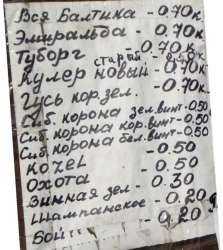 Вся Балтика - 0.70к
Эмиральба - 0.70 к
Туборг - 0.70 к
старый
Кулер новый - 0.70к
Гусь кор.зел. - 0.70к
Сиб. корона зел.винт-0.50
Сиб. корона кор.винт-0.50
Сиб. корона бел.винт-0.50
Козел -0.50
Охота - 0.50
Винная зел. - 0.30
Шампанское - 0.20
- 0.20